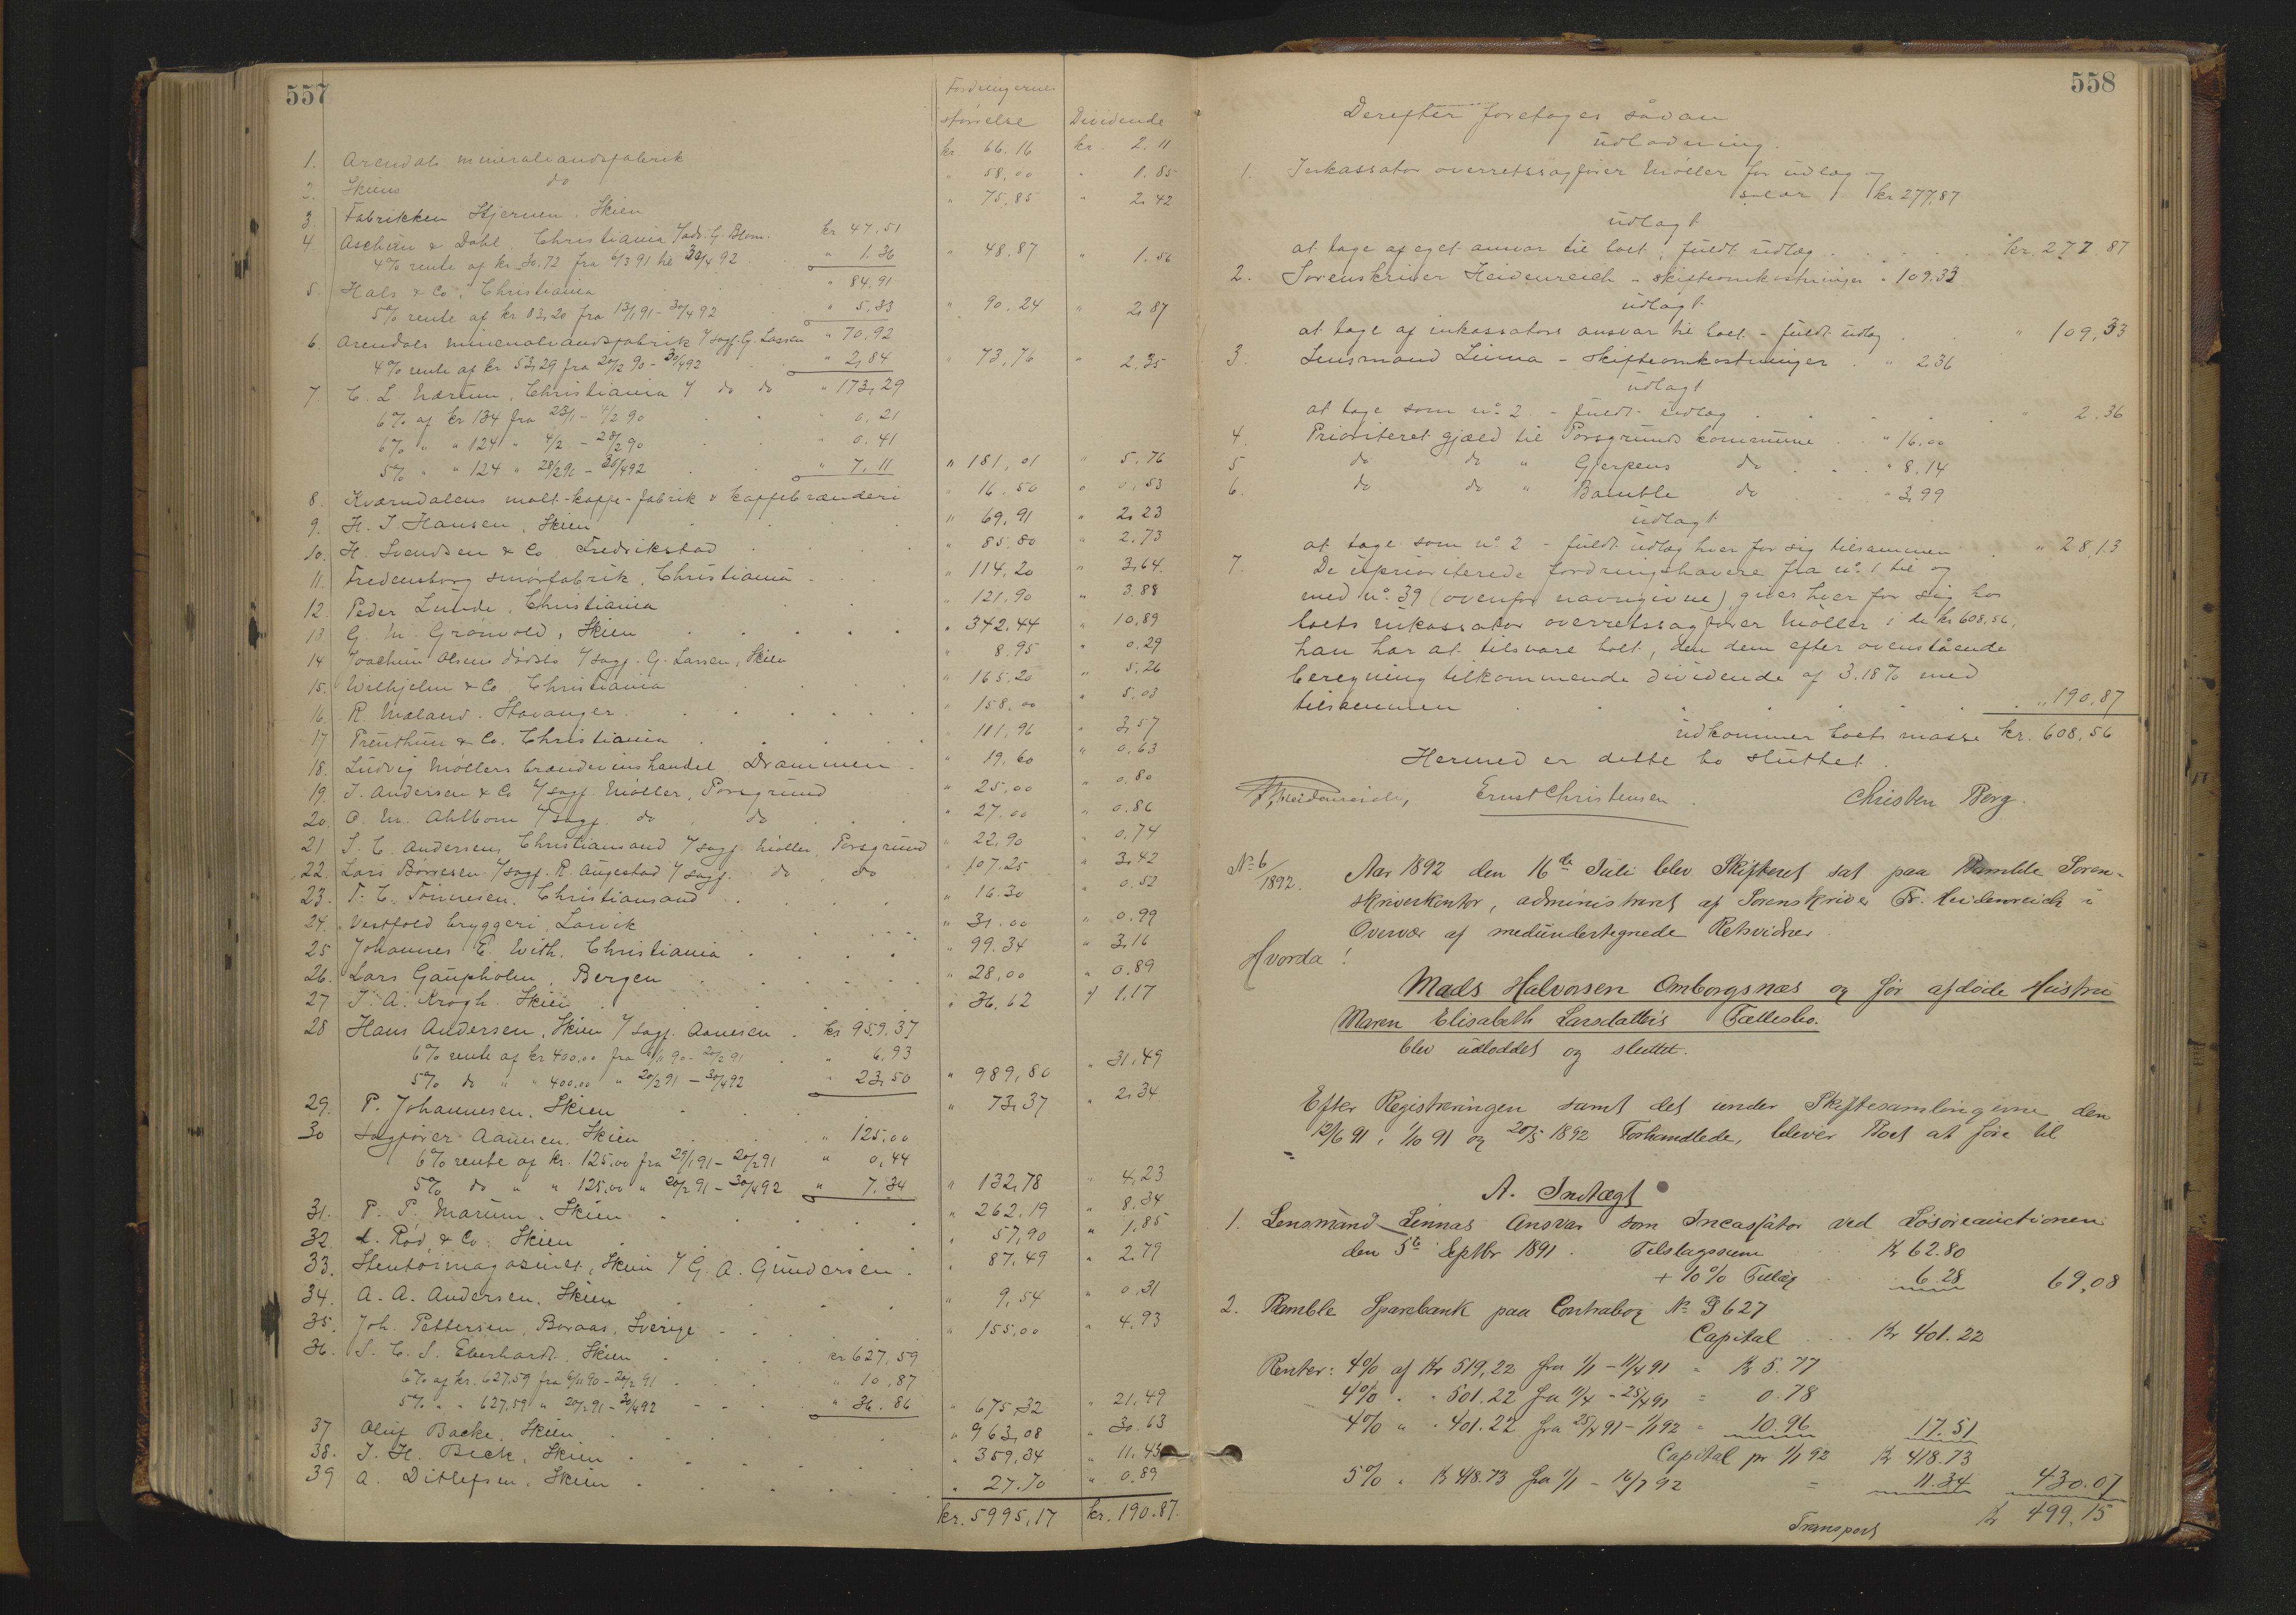 557
Fordringernes
størrelse Dividende
1. Arendals mineralvandsfabrik kr. 66.16 kr. 2.11
2. Skiens do " 58,00 " 1.85
3. Fabrikken Stjernen, Skien " 75,85 " 2,42
4. Aschün & Dahl, Christiania v/adv. G. Blom. kr 47,51
4% rente af kr. 30.72 fra 6/3 91 til 30/4 92 " 1.36 " 48,87 " 1.56
5. Hals & Co, Christiania " 84,91
5% rente af kr 83,20 fra 13/1 91 - 30/4 92 " 5,33 " 90,24 " 2,87
6. Arendals mineralvandsfabrik v/sagf. G. Lassen " 70,92
4% rente af kr 53,29 fra 20/12 90 - 30/4 92 " 2,84 " 73,76 " 2.35
7. C. L. Nærum, Christiania v/ do do " 173,29
6% af kr 134 fra 23/1 - 4/2 90 " 0,21
6% " " 124 " 4/2 - 28/2 90 " 0.41
5% " " 124 " 28/2 90 - 30/4 92 " 7,11 " 181,01 " 5.76
8. Kværndalens malt-kaffe-fabrik & kaffebrænderi " 16,50 " 0,53
9. H. J. Hansen, Skien " 69,91 " 2,23
10. H. Svendsen & Co, Fredrikstad " 85.80 " 2,73
11. Fredensborg smørfabrik, Christiania " 114,20 " 3,64
12. Peder Lunde, Christiania " 121,90 " 3.88
13 G. M. Grønvold, Skien " 342,44 " 10,89
14 Joachim Olsens dødsbo v/sagf. G. Lassen, Skien " 8.95 " 0.29
15. Wilhjelm & Co, Christiania " 165,20 " 5,26
16. R. Mæland, Stavanger " 158,00 " 5,03
17 Trenthun & Co. Christiania " 111,96 " 3,57
18. Ludvig Møllers brændevinshandel, Drammen " 19,60 " 0,63
19. J. Andersen & Co v/sagf. Møller, Porsgrund " 25,00 " 0,80
20. O. M. Ahlbom v/sagf. do, do " 27.00 " 0.86
21 S. C. Andersen, Christiansand v/sagf. Møller, Porsgrund " 22,90 " 0.74
22. Lars Børresen v/sagf. R. Augestad v/sagf. do, do " 107.25 " 3,42
23. T. C. Tønnesen, Christiansand " 16.30 " 0.52
24. Vestfold bryggeri, Larvik " 31.00 " 0.99
25 Johannes E. With, Christiania " 99.34 " 3,16
26. Lars Gaupholm, Bergen " 28,00 " 0.89
27 J. A. Krogh, Skien " 36,62 " 1,17
28 Hans Andersen, Skien v/sagf. Aanesen kr. 959.37
6% rente af kr 400,00 fra 6/11 90 - 20/2 91 " 6,93
5% do " " 400,00 " 20/2 91 - 30/4 92 " 23,50 " 989,80 " 31,49
29. P. Johannesen, Skien " 73,37 " 2,34
30 Sagfører Aanesen, Skien " 125,00
6% rente af kr. 125,00 fra 29/1 91 - 20/2 91 " 0,44
5% do " " 125,00 " 20/2 91 - 30/4 92 " 7,34 " 132,78 " 4,23
31. P. P. Marum, Skien " 262,19 " 8.34
32. L. Rød & Co. Skien " 57,90 " 1,85
33. Stentøimagasinet, Skien v/ G. A. Gundersen " 87,49 " 2.79
34. A. A. Andersen, Skien " 9,54 " 0,31
35. Joh. Pettersen, Boraas, Sverige " 155,00 " 4,93
36. S. C. S. Eberhardt, Skien kr 627,59
6% af kr. 627.59 fra 6/11 90 - 20/2 91 " 10,87
5% " " 627.59 " 20/2 91 - 30/4 92 " 36.86 " 675,32 " 21,49
37 Oluf Backe, Skien " 963,08 " 30.63
38. J. H. Beck, Skien " 359,34 " 11.43
39 A. Ditlefsen, Skien " 27.70 " 0.89
kr. 5995,17 kr. 190.87.
558
Derefter foretoges sådan
udlodning.
1. Inkassator overretssagfører Møller for udlæg og
salær kr 277,87
udlagt
at tage af eget ansvar til boet, fuldt udlæg kr. 277,87
2. Sorenskriver Heidenreich - skifteomkostninger " 109.33
udlagt
at tage af inkassators ansvar til boet - fuldt udlæg " 109,33
3. Lensmand Linna - skifteomkostninger " 2,36
udlagt
at tage som no. 2 - fuldt udlæg " 2.36
4. Prioriteret gjæld til Porsgrunds kommune " 16.00
5 do do " Gjerpens do " 8.14
6. do do " Bamble do " 3,99
udlagt
at tage som no. 2 - fuldt udlæg hver for sig tilsammen " 28,13
7. De uprioriterede fordringshavere fra no. 1 til og
med no. 39 (ovenfor navngivne), gives hver for sig hos
boets inkassator overretssagfører Møller i de kr 608.56,
han har at tilsvare boet, den dem efter ovenstående
beregning tilkommende dividende af 3.18% med
tilsammen " 190,87
udkommer boets masse kr. 608,56
Hermed er dette bo sluttet.
Fr. Heidenreich, Ernst Christensen. Christen Berg.
No. 6/1892. Aar 1892 den 16de Juli blev Skifteret sat paa Bamble Soren-
skriverkontor, administreret af Sorenskriver Fr. Heidenreich i
Overvær af medundertegnede Retsvidner.
Hvorda!
Mads Halvorsen Omborgsnæs og før afdøde Hustru
Maren Elisabeth Larsdatters Fællesbo.
blev udloddet og sluttet.
Efter Registreringen samt det under Skiftesamlingerne den
12/6 91, 1/10 91 og 20/5 1892 Forhandlede, bliver Boet at føre til
A. Indtægt
1. Lensmand Linnas Ansvar som Incassator ved Løsøreauctionen
den 5te Septbr 1891. Tilslagssum Kr 62.80
+ 10% Tillæg 6.28 69,08
2. Bamble Sparebank paa Contrabog No. 3627
Capital Kr 401.22
Renter: 4% af Kr 519,22 fra 1/1 - 11/4 91 = Kr 5.77
4% " " 501.22 fra 11/4 - 25/4 91 = 0.78
4% " " 401.22 fra 25/4 91 - 1/1 92 = 10.96 17.51
Capital pr 1/1 92 Kr 418.73
5% " Kr 418.73 fra 1/1 - 16/7 92 = 11.34 430.07
Transport Kr 499.15